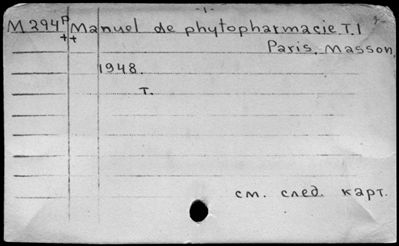 - 1 -
M 294 P Manuel de phytopharmacie. T. 1
++
Paris, Masson,
1948.
T.
см. след. карт.